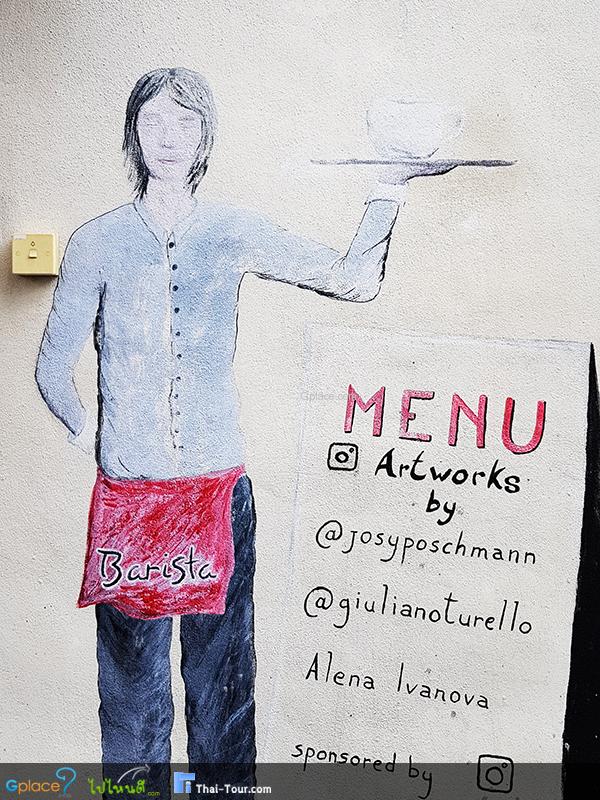 MENU
Artworks
by
@josyposchmann
@giulianoturello
Alena Ivanova
sponsored by
Barista
Gplace
ไปไหนดี.com
Thai-Tour.com